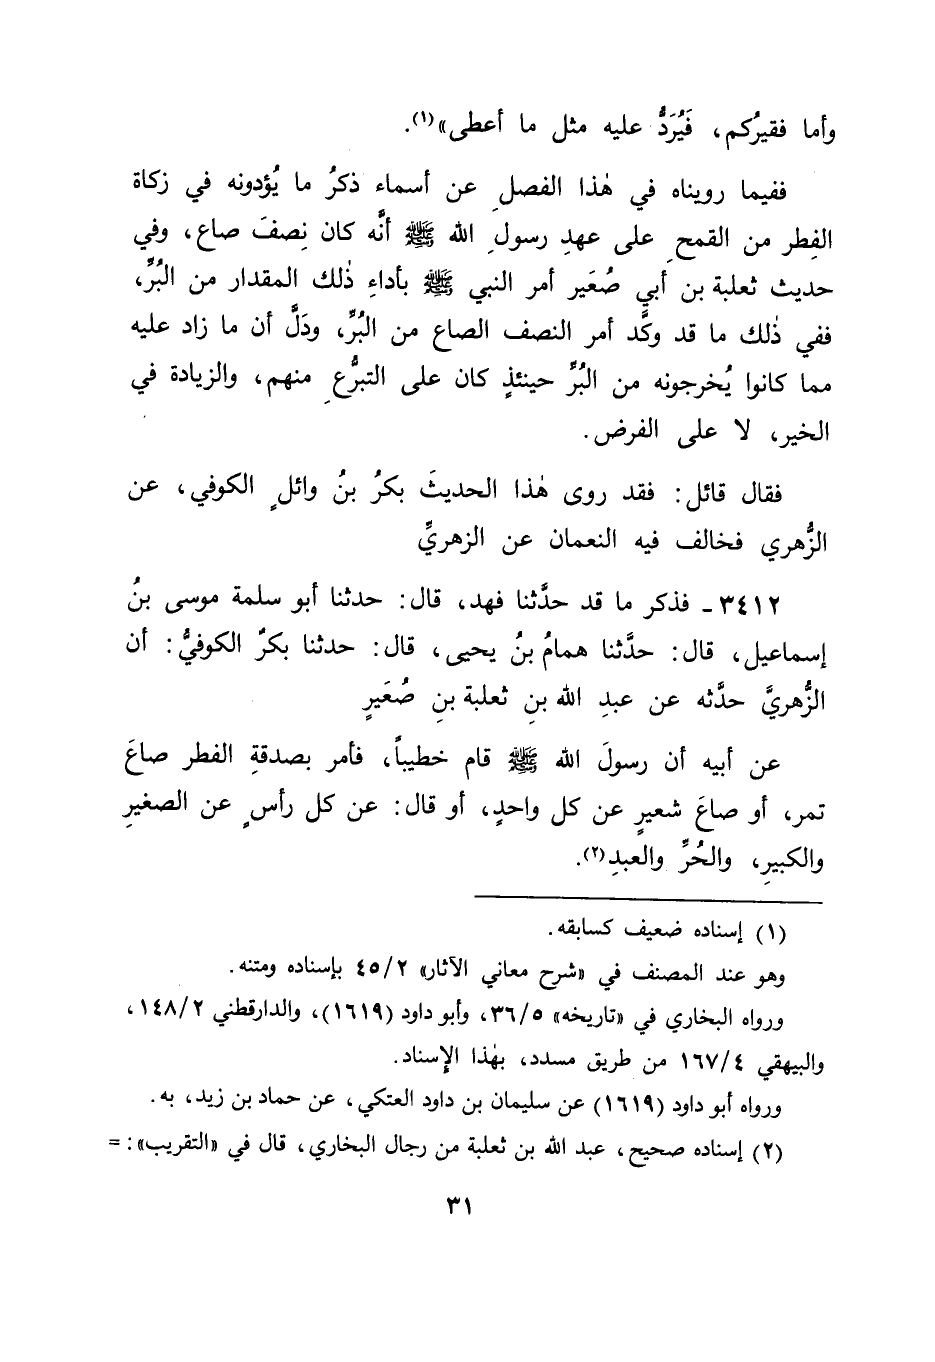 وأما فقيرُكم، فَيُرَدُّ عليه مثل ما أعطى»(١).
ففيما رويناه في هٰذا الفصلِ عن أسماء ذكرُ ما يُؤدونه في زكاة
الفِطر من القمحِ على عهدِ رسولِ الله ﷺ أنَّه كان نِصفَ صاع، وفي
حديث ثعلبة بن أبي صُعَير أمر النبي ﷺ بأداءِ ذٰلك المقدار من البُرِّ،
ففي ذٰلك ما قد وكَّد أمر النصف الصاع من البُرِّ، ودَلَّ أن ما زاد عليه
مما كانوا يُخرجونه من البُرِّ حينئذٍ كان على التبرُّعِ منهم، والزيادة في
الخير، لا على الفرض.
فقال قائل: فقد روى هٰذا الحديثَ بكرُ بنُ وائلٍ الكوفي، عن
الزُّهري فخالف فيه النعمان عن الزهريِّ
٣٤١٢ـ فذكر ما قد حدَّثنا فهد، قال: حدثنا أبو سلمة موسى بنُ
إسماعيل، قال: حدَّثنا همامُ بنُ يحيى، قال: حدثنا بكرٌ الكوفيُّ: أن
الزُّهريَّ حدَّثه عن عبدِ الله بنِ ثعلبة بنِ صُعَيرٍ
عن أبيه أن رسولَ الله ﷺ قام خطيباً، فأمر بصدقةِ الفطر صاعَ
تمر، أو صاعَ شعيرٍ عن كل واحدٍ، أو قال: عن كل رأسٍ عن الصغيرِ
والكبيرِ، والحُرِّ والعبدِ(٢).
(١) إسناده ضعيف كسابقه.
وهو عند المصنف في «شرح معاني الآثار» ٤٥/٢ بإسناده ومتنه.
ورواه البخاري في «تاريخه» ٣٦/٥، وأبو داود (١٦١٩)، والدارقطني ١٤٨/٢،
والبيهقي ١٦٧/٤ من طريق مسدد، بهٰذا الإسناد.
ورواه أبو داود (١٦١٩) عن سليمان بن داود العتكي، عن حماد بن زيد، به.
(٢) إسناده صحيح، عبد الله بن ثعلبة من رجال البخاري، قال في «التقريب»: =
٣١